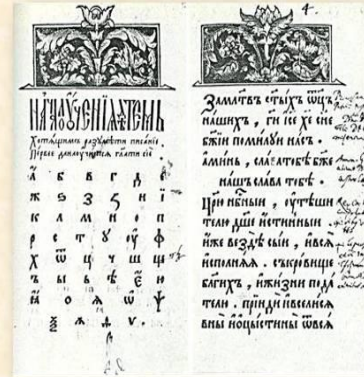 НАЧАЛОУЧЕНІЯДѢТЕМЪ
Хотѧщимъ разꙋмѣти писаніе.
а б в г д є
ж ѕ з ꙁ и ї
к л м н о п
р с т ѹ ꙋ ф
х ѿ ц ч ш щ
ъ ы ь ѣ ю
ꙗ о ѧ ѡ ѱ
ѯ ѧ ѳ ѵ.
4.
Замлтвъ ст҃ыхъ ѿц҃ъ
нашихъ, ги ісе хе сне
бжїи помилꙋи насъ.
аминь, славатобѣ бже
нашъ слава тобѣ.
Црю нбныи, ѹтѣши
телю дше истинныи
иже вездѣ сыи, ивсѧ
исполнꙗѧ. съкровище
багихъ, ижизни пода
телю. прїиди ивселисѧ
вны иоцыстины ѿвсѧ